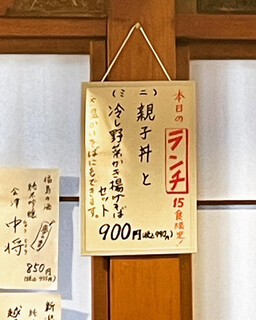 本日の
ランチ
15食限定!
(ミニ)
親子丼と
冷し野菜かき揚げそば
セット
900円(税込990円)
温かいそばにもできます。
福島の酒
純米吟醸
会津
中将
850円
(税込935円)